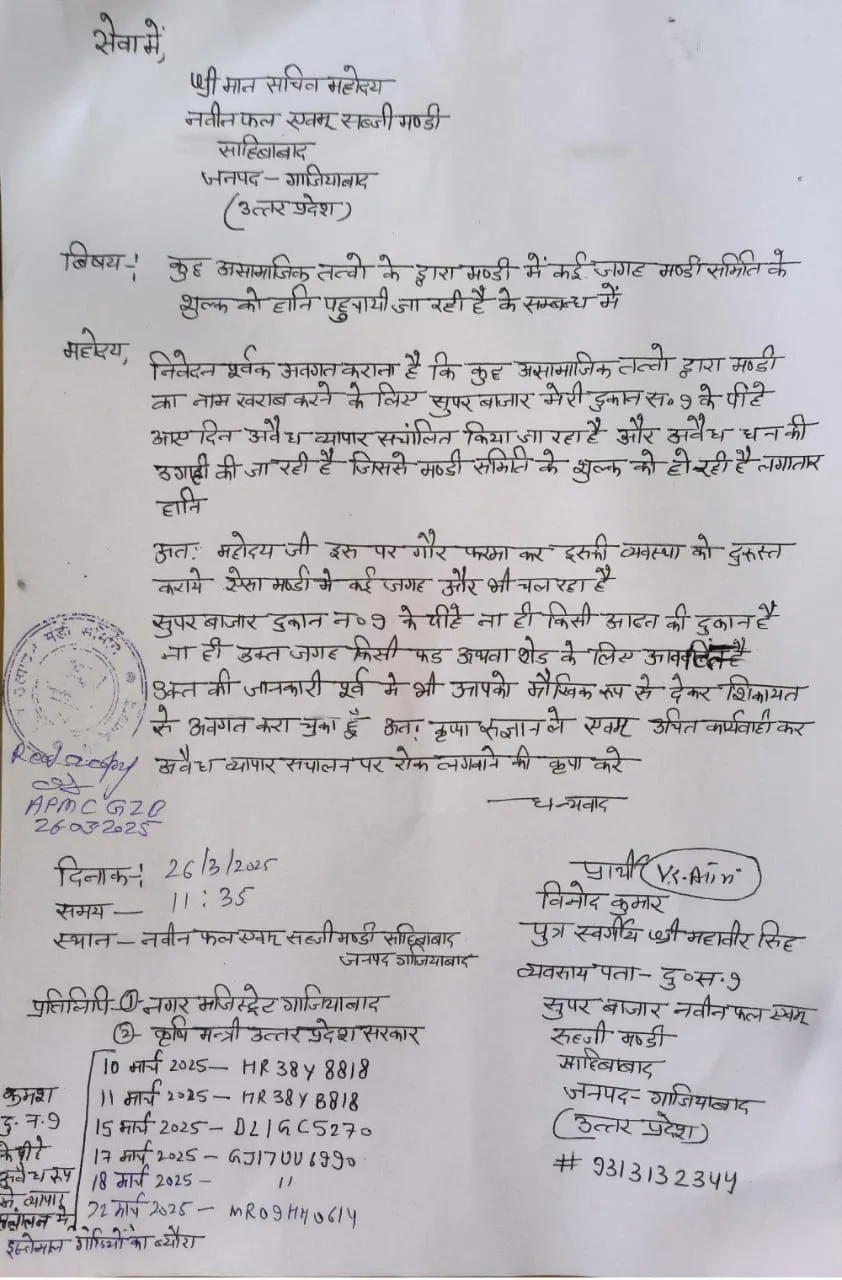 सेवा में,
श्री मान सचिव महोदय
नवीन फल एवम् सब्जी मण्डी
साहिबाबाद
जनपद - गाजियाबाद
(उत्तर प्रदेश)
बिषय -: कुछ असामाजिक तत्वो के द्वारा मण्डी में कई जगह मण्डी समिति के
शुल्क को हानि पहुचायी जा रही है के सम्बन्ध में
महोदय,
निवेदन पूर्वक अवगत कराना है कि कुछ असामाजिक तत्वो द्वारा मण्डी
का नाम खराब करने के लिए सुपर बाजार मेरी दुकान स० 9 के पीछे
आए दिन अवैध व्यापार सचांलित किया जा रहा है और अवैध धन की
उगाही की जा रही है जिससे मण्डी समिति के शुल्क को हो रही है लगातार
हानि
अतः महोदय जी इस पर गौर फरमा कर इसकी व्यवस्था को दुरूस्त
कराये ऐसा मण्डी मे कई जगह और भी चल रहा है
सुपर बाजार दुकान न० 9 के पीछे ना ही किसी आढत की दुकान है
ना ही उक्त जगह किसी फड अथवा शेड के लिए है
उक्त की जानकारी पूर्व मे भी आपको मौखिक रूप से देकर शिकायत
से अवगत करा चुका हूँ अतः कृप्या संज्ञान ले एवम् उचित कार्यवाही कर
अवैध व्यापार सचालन पर रोक लगवाने की कृपा करे
धन्यवाद
मंडी समिति
copy
APMC GZB
26-03-2025
दिनाक -: 26/3/2025
समय - 11:35
स्थान - नवीन फल एवम् सब्जी मण्डी साहिबाबाद
जनपद गाजियाबाद
प्रार्थी
विनोद कुमार
पुत्र स्वर्गीय श्री महावीर सिंह
व्यवसाय पता - दु० स० 9
सुपर बाजार नवीन फल एवम्
सब्जी मण्डी
साहिबाबाद
जनपद - गाजियाबाद
(उत्तर प्रदेश)
# 9313132344
प्रतिलिपि - ① नगर मजिस्ट्रेट गाजियाबाद
② - कृषि मन्त्री उत्तर प्रदेश सरकार
10 मार्च 2025 - HR 38Y 8818
11 मार्च 2025 - HR 38Y 8818
15 मार्च 2025 - DL1GC5270
17 मार्च 2025 - GJ17UU6990
18 मार्च 2025 - "
22 मार्च 2025 -
क्रमश
दु. न. 9
के पीछे
अवैध रूप
से व्यापार
सचालन मे
इस्तेमाल गाडियो का ब्यौरा